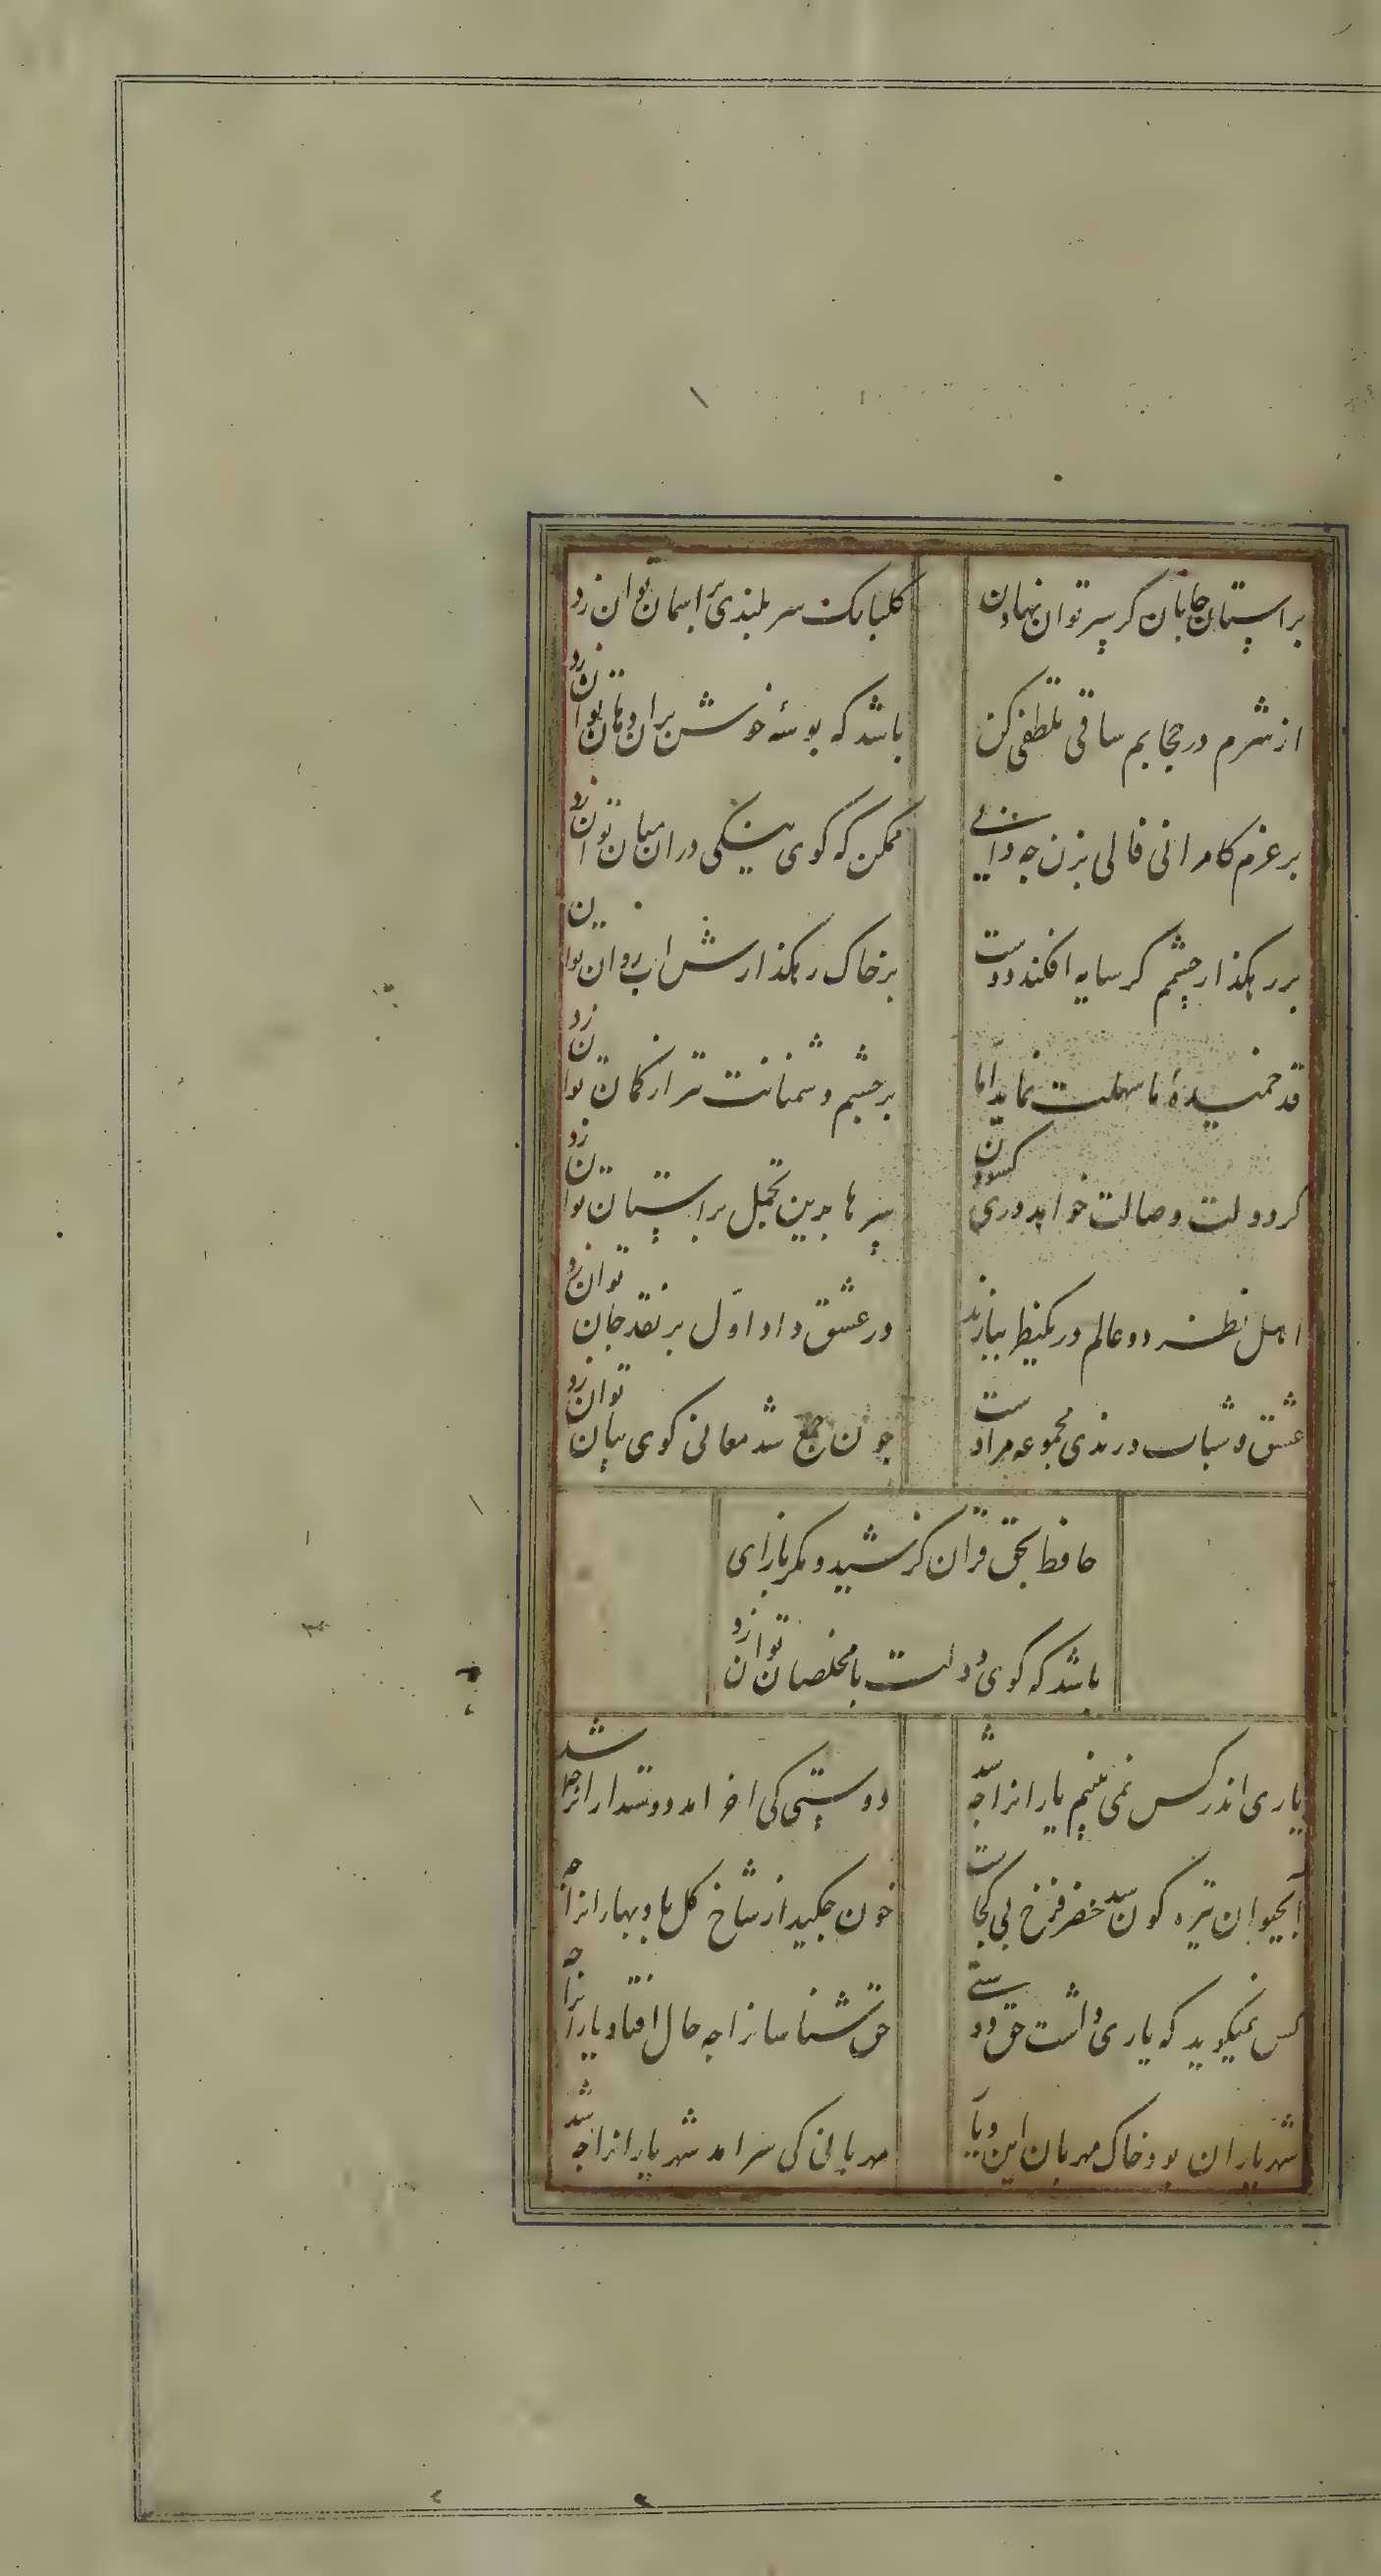 براستان جانان گر سر توان نهادن
گلبانک سربلندی بر آسمان توان زد
از شرم در حجابم ساقی تلطفی کن
باشد که بوسهٔ خوش بران دهان توان زد
بر عزم کامرانی فالی بزن چه دانی
ممکن که کوی نیکی دران میان توان زد
بر رهکذار چشمم کر سایه افکند دوست
بر خاک رهکذارش اب روان توان
قد خمیدهٔ ما سهلت نماید اما
بر چشم دشمنانت تیر از کمان توان زد
کر دولت وصالت خواهد دری کشودن
سرها بدین تخیل بر استان توان زد
اهل نظر دو عالم در یکنظر ببازند
در عشق داد اول بر نقد جان توان زد
عشق و شباب و رندی مجموعه مرادست
چون جمع شد معانی کوی بیان توان زد
حافظ بحق قران کز شید و مکر بازای
باشد که کوی دولت با مخلصان توان زد
یاری اندر کس نمی بینم یارانرا چه شد
دوستی کی اخر امد دوستدارانرا چه شد
آبحیوان تیره کون شد خضر فرخ پی کجاست
خون چکید از شاخ کل باد بهارانرا چه
کس نمیکوید که یاری داشت حق دوستی
حق شناسانرا چه حال افتاد یارانرا چه
شهر یاران بود و خاک مهربان این دیار
مهربانی کی سر امد شهریارانرا چه شد